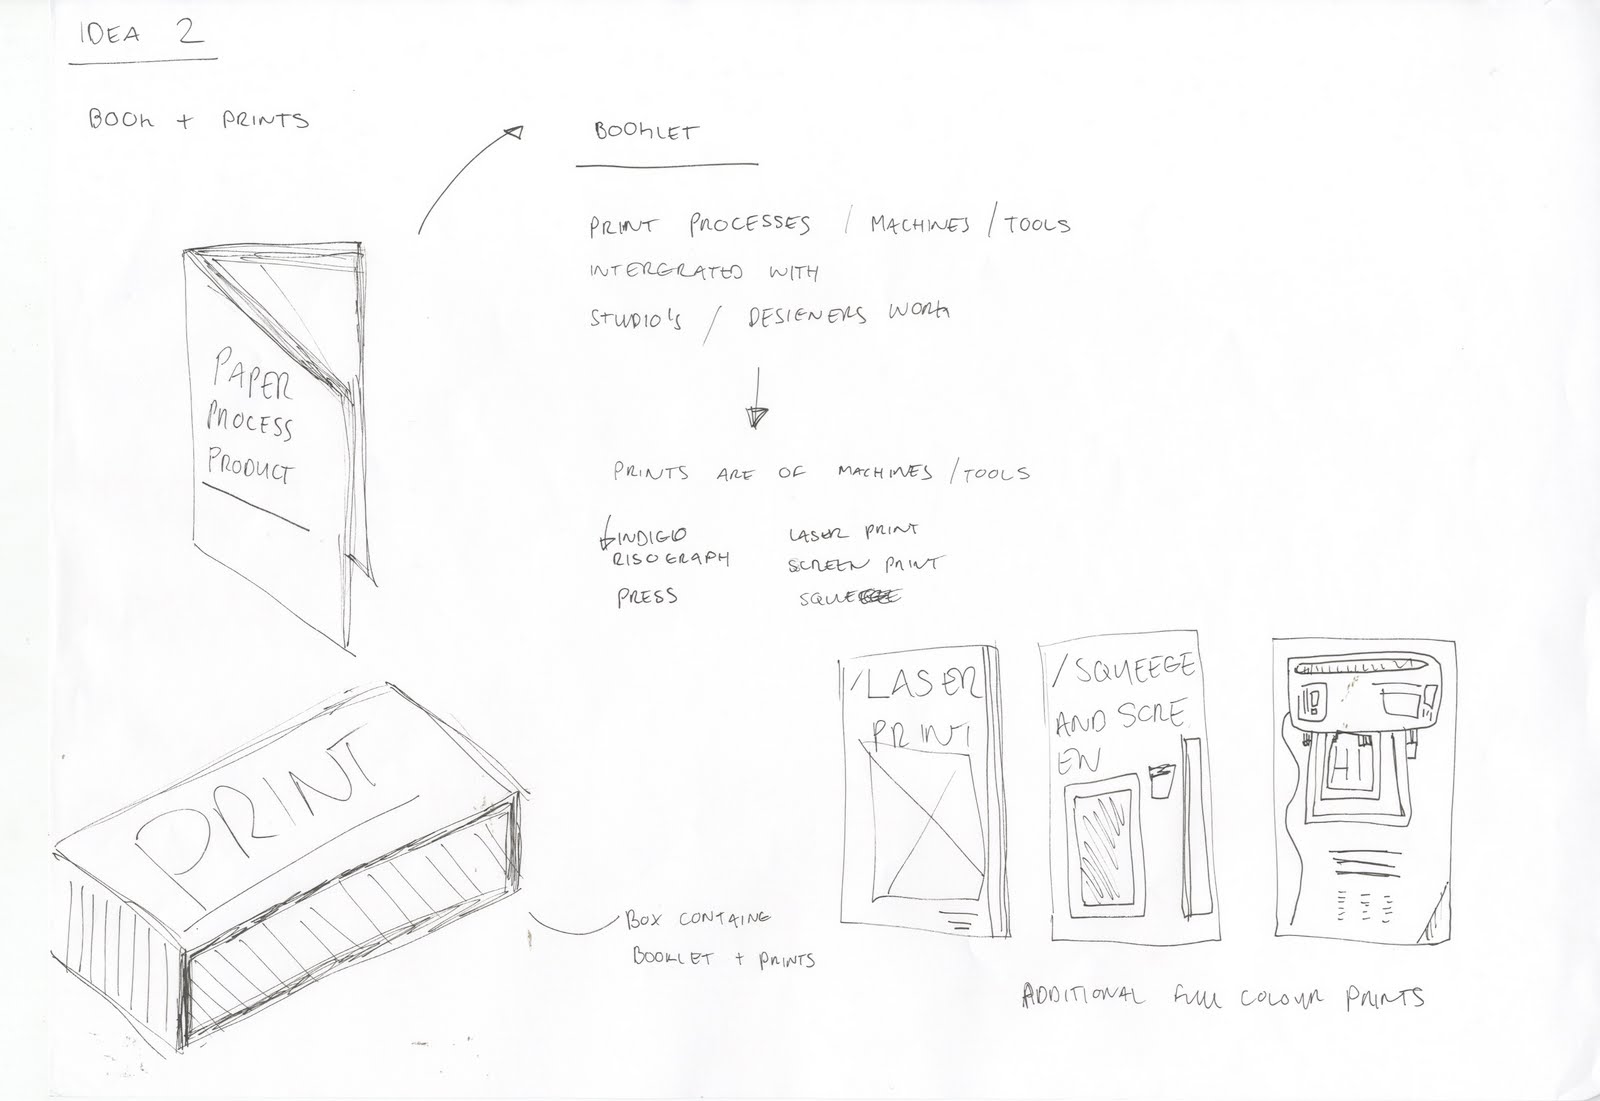 IDEA 2
BOOK + PRINTS
BOOKLET
PRINT PROCESSES / MACHINES / TOOLS
INTERGRATED WITH
STUDIO'S / DESIGNERS WORK
PAPER
PROCESS
PRODUCT
PRINTS ARE OF MACHINES / TOOLS
INDIGO
RISOGRAPH
PRESS
LASER PRINT
SCREEN PRINT
/LASER
PRINT
/SQUEEGE
AND SCRE
EN
PRINT
BOX CONTAINE
BOOKLET + PRINTS
ADDITIONAL FULL COLOUR PRINTS